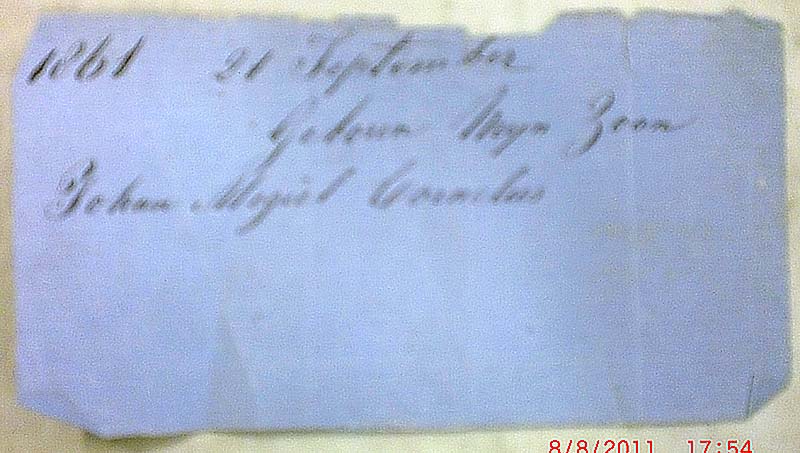 1861 21 September
Geboren Myn Zoon
Johan Mogiel Cornelus
8/8/2011 17:54